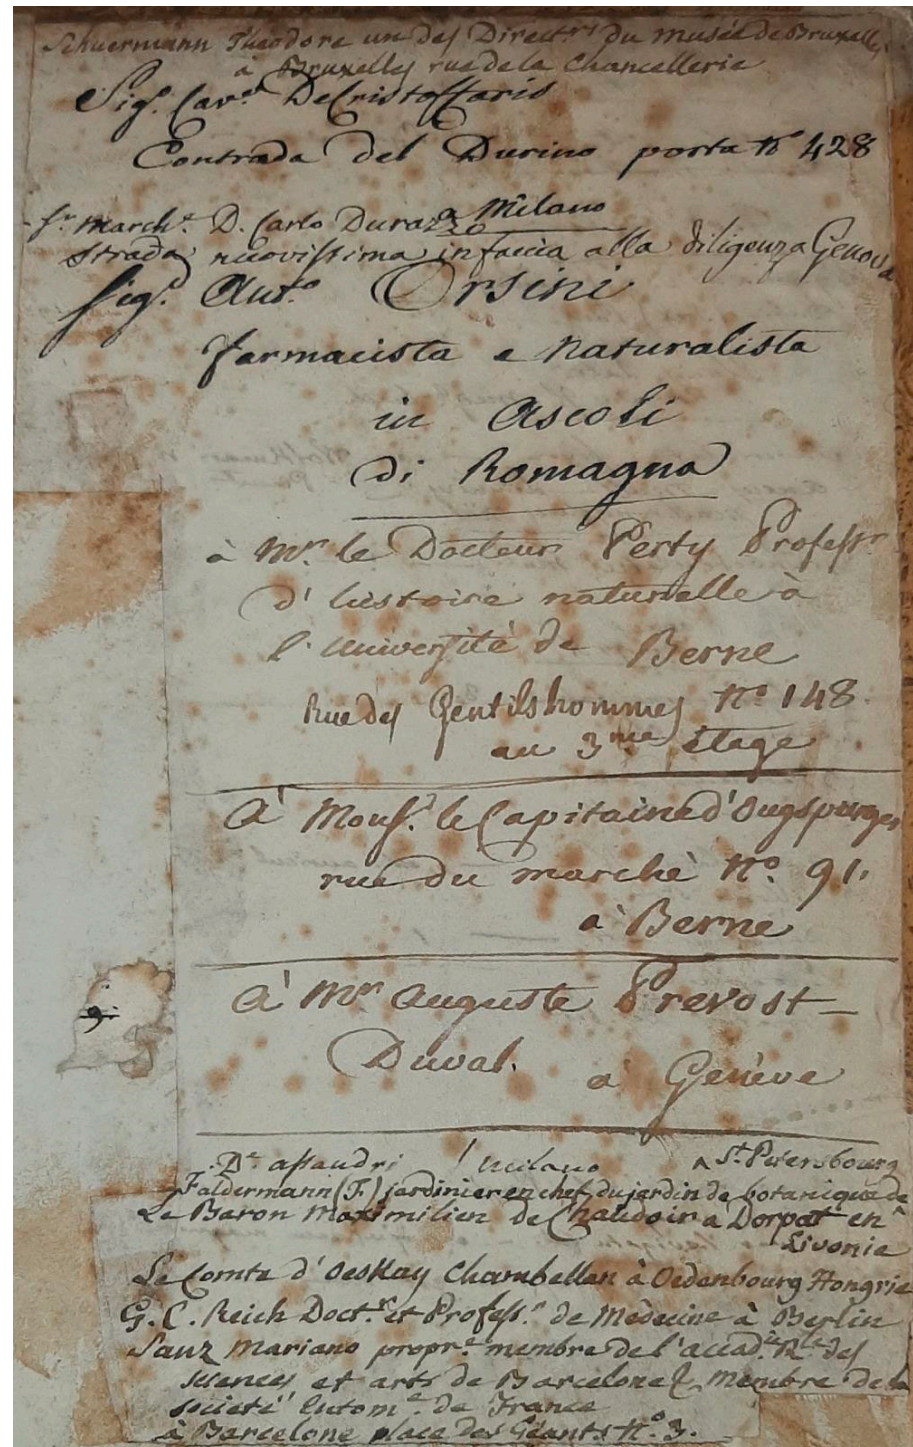 Schuermann Théodore un des Directrs du musée de Bruxelles
à Bruxelles rue de la Chancellerie
Sigr. Cavre De Cristoffaris
Contrada del Durino porta No 428
a Milano
Sr. Marche. D. Carlo Durazzo
Strada nuovissima infaccia alla diligenza Genova
Sigr. Anto. Orsini
farmacista e naturalista
in Ascoli
di Romagna
à Mr. le Docteur Perty Professr
d'histoire naturelle à
l'université de Berne
Rue des Gentilshommes No. 148.
au 3me étage
à Monsr. le Capitaine d'Ougspurger
rue du marchè No. 91.
à Berne
à Mr Auguste Prevost
Duval. à Genève
Dr. assandri / milano ^ St. Petersbourg
Faldermann (F.) jardinier en chef du jardin de botanique de ^
Le Baron Maximilien de Chaudoir a Dorpat en
Livonie
Le Comte d'Oeskay Chambellan à Oedenbourg Hongrie
G. C. Reich Doctr. et Professr. de Médecine à Berlin
Sanz Mariano propre. membre de l'accad. Rle des
sciences et arts de Barcelone & Membre de la
societé Entome. de France
à Barcelone place des Géants No. 3.